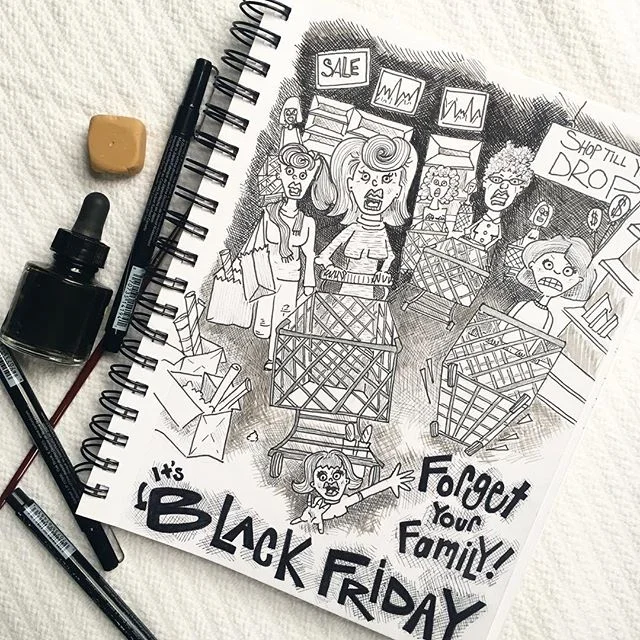 SALE
SHOP TILL
DROP
$
$
Forget
Your
Family!
It's
BLACK FRiDAY